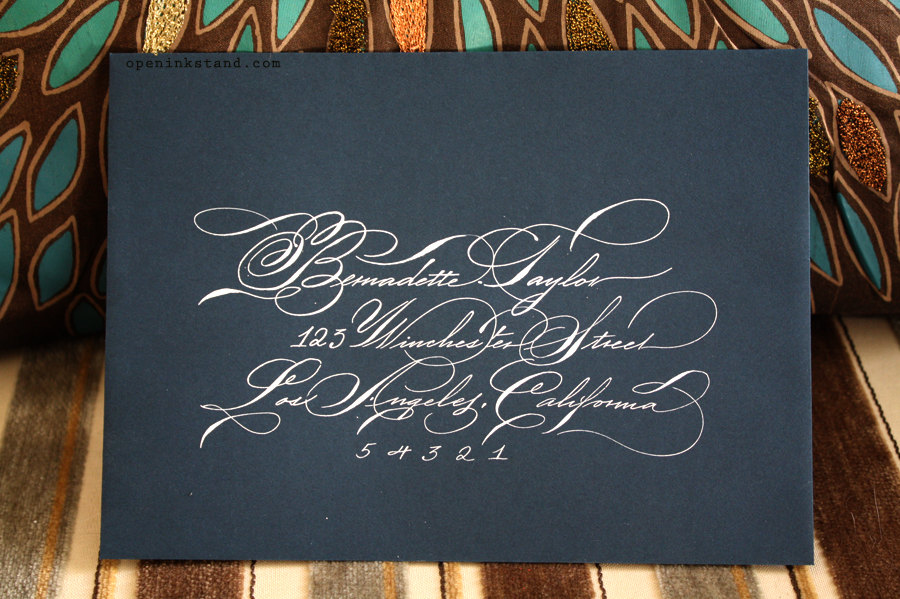 openinkstand.com
Bernadette Taylor
123 Winchester Street
Los Angeles, California
54321